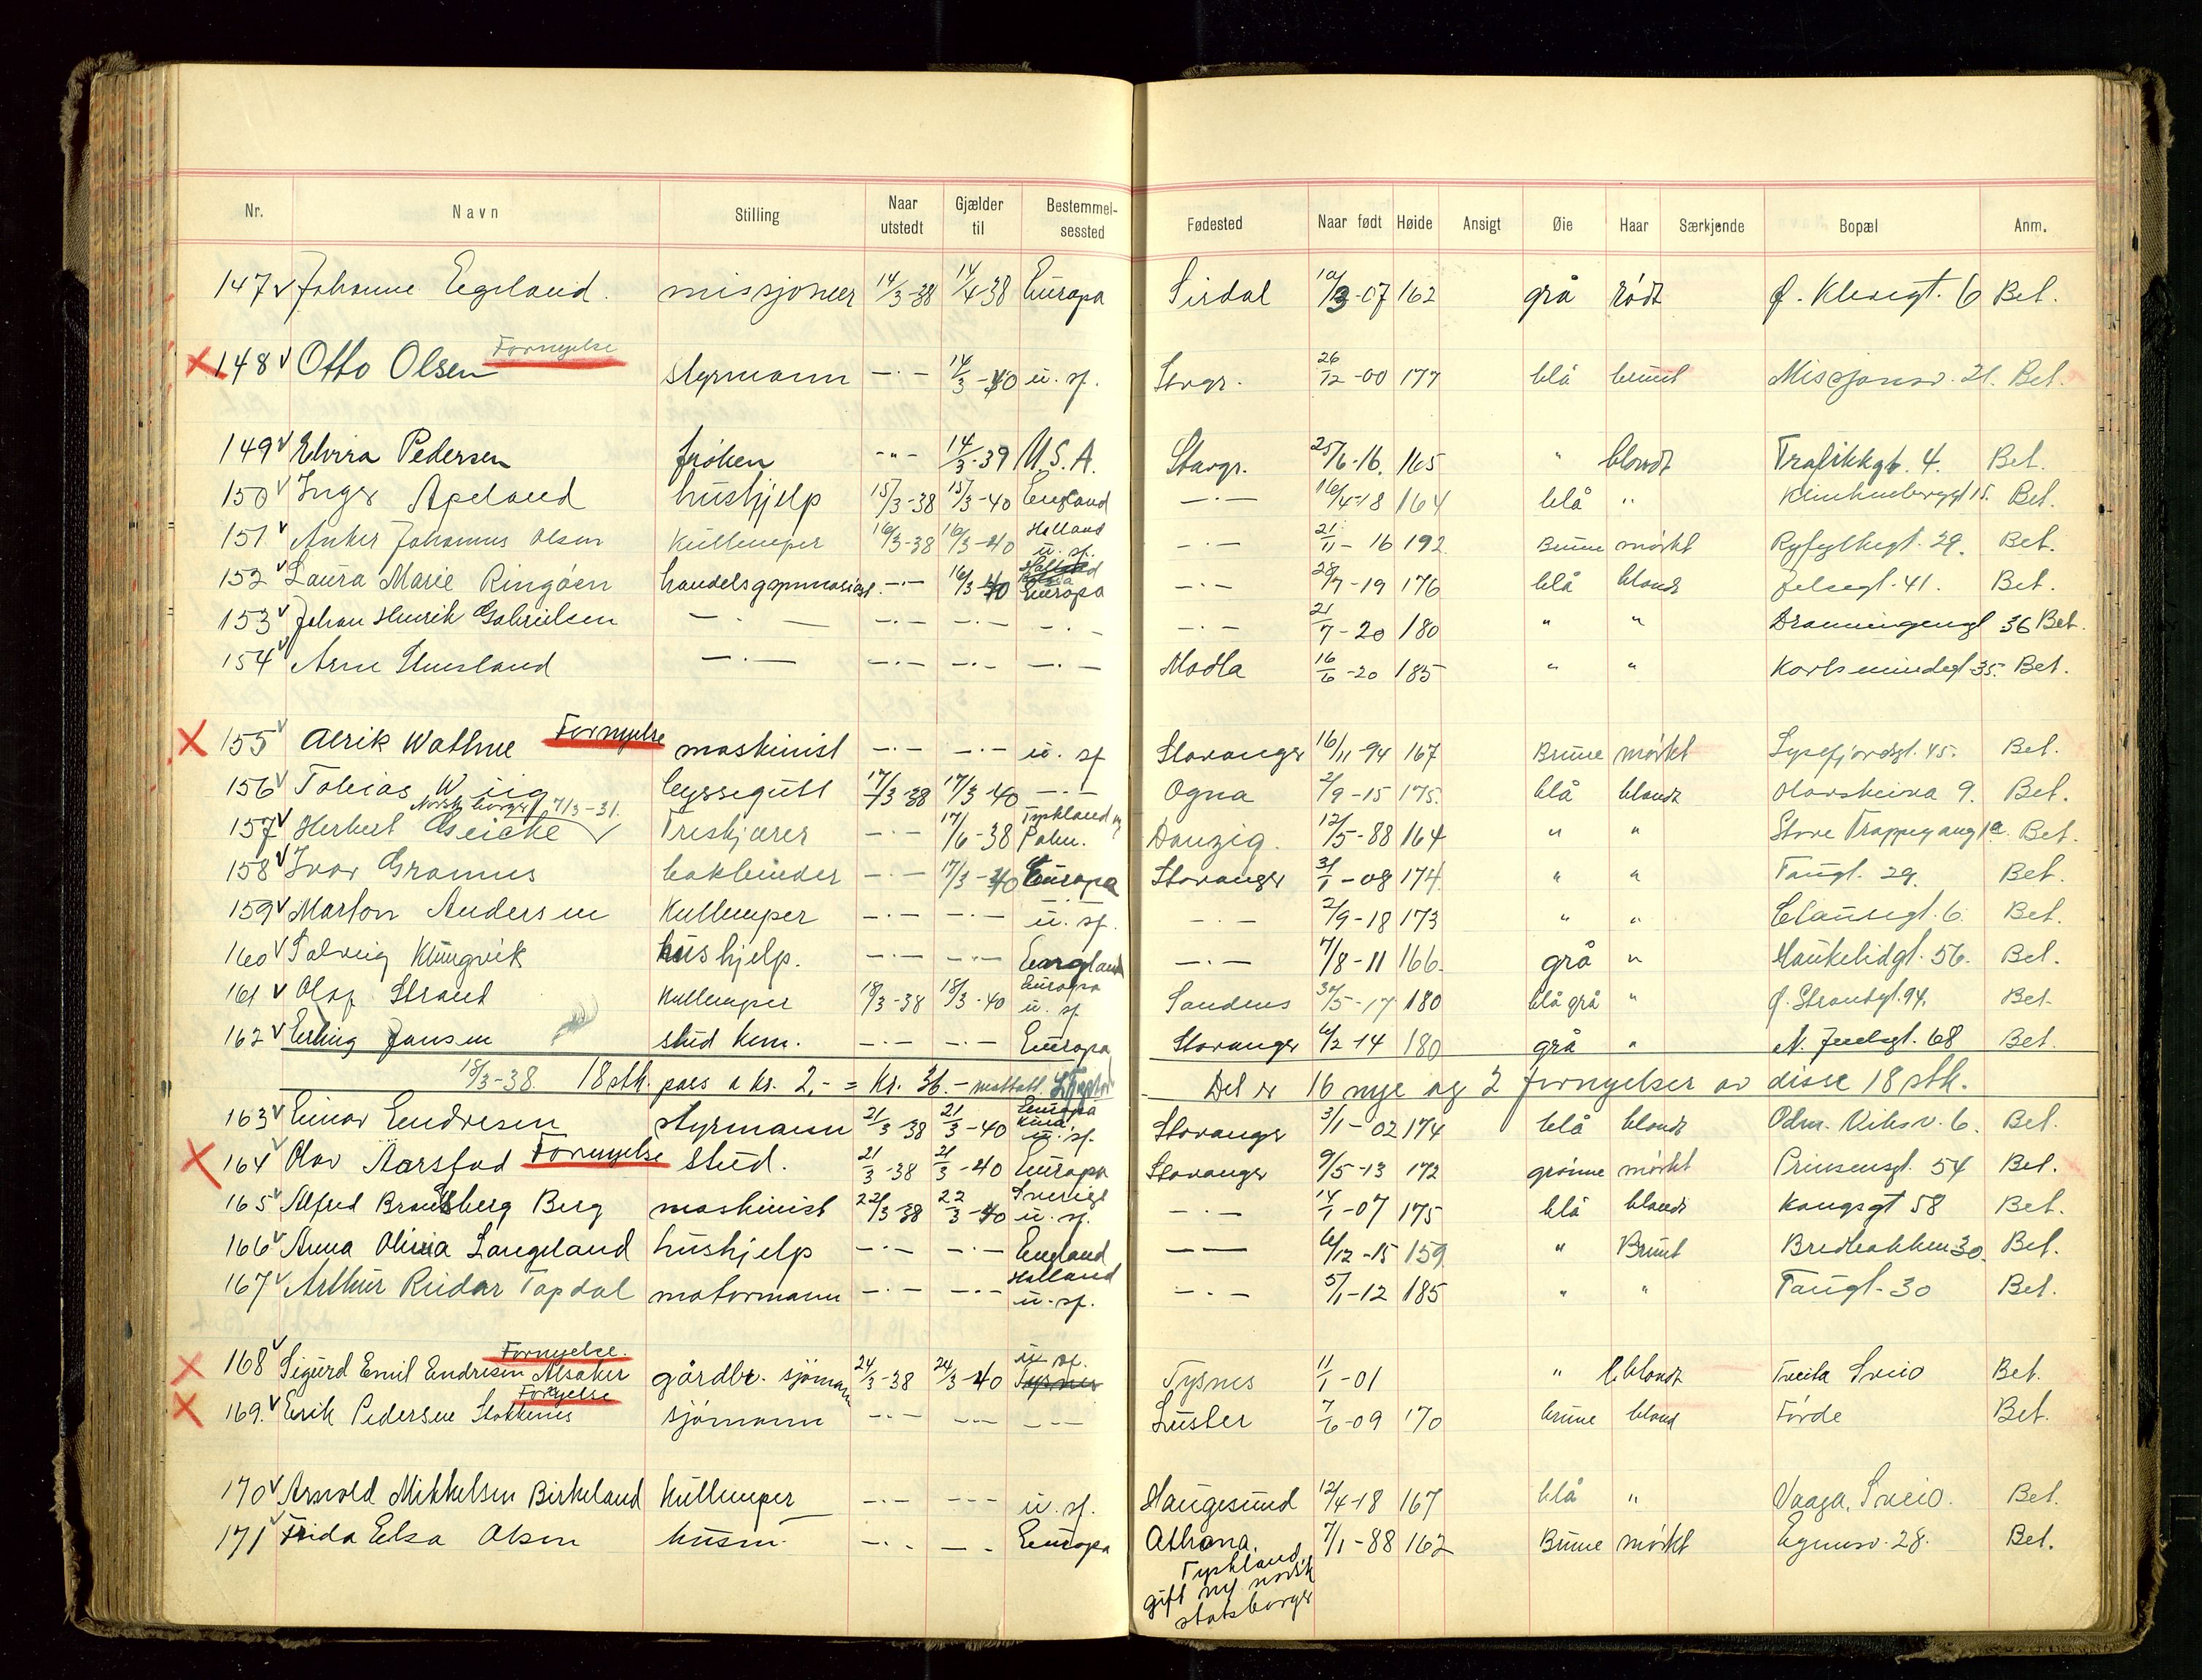 Nr. Navn Stilling Naar utstedt Gjælder til Bestemmelsessted Fødested Naar født Høide Ansigt Øie Haar Særkjende Bopæl Anm.
147 v Johanne Egeland. missjonær 14/3-38 14/4-38 Europa Sirdal 10/3-07 162 grå rödt Bet.
Fornyelse
X 148 v Otto Olsen styrmann -"- 14/3-40 u. sf. Stvgr. 26/12-00 177 blå brunt Missjonsv. 21. Bet.
149 v Elvira Pedersen fröken -"- 14/3-39 U.S.A. Stavgr. 25/6-16. 165 " blondt Trafikkgt. 4. Bet.
150 v Inger Apeland hushjelp 15/3-38 15/3-40 England -"- 16/4-18 164 blå " Bet.
151 v Anker Johannes Olsen Kullemper 16/3-38 16/3-40 Holland u. sf. -"- 21/11-16 192 Brune mörkt Ryfylkegt. 29. Bet.
152 v Laura Marie Ringöen handelsgymnasiast. -"- 16/3-40 Europa -"- 28/7-19 176 blå blondt Jelsegt. 41. Bet.
153 v Johan Henrik Gabrielsen -"- -"- -"- -"- -"- 21/7-20 180 " " Dronningengt 36 Bet.
154 v Arne -"- -"- -"- -"- Madla 16/6-20 185 " " Karlsmindegt 35. Bet.
X 155 v Alrik Wathne Fornyelse maskinist -"- -"- u. sf Stavanger 16/11-94 167 Brune mörkt Lysefjordgt. 45. Bet.
156 v Tobias Wiig byssegutt 17/3-38 17/3-40 -"- Ogna 2/9-15 175. blå blondt Olavskleiva 9. Bet.
Norsk borger 17/3-31.
157 v Herbert Geicke Friskjærer -"- 17/6-38 Tyskland Polen. Danzig. 12/5-88 164 " " Store Trappegang 1a. Bet.
158 v Ivar Gramnes bokbinder -"- 17/3-40 Europa Stavanger 31/1-08 174 " " Taugt. 29. Bet.
159 v Marton Andersen Kullemper -"- -"- u. sf. -"- 2/9-18 173 " " Clausegt. 6. Bet.
160 v Solveig Klungvik hushjelp. -"- -"- England -"- 7/8-11 166. grå " Haukelidgt. 56. Bet.
161 v Olaf Strand Kullemper 18/3-38 18/3-40 Europa u. sf Sandnes 30/5-17 180 blågrå " Ø. Strandgt. 94. Bet.
162 v Erling Jansen stud kem. -"- -"- Europa Stavanger 6/2-14 180 grå " N. Juelsgt. 68 Bet.
18/3-38. 18 stk. pass a kr. 2,- = Kr. 36.- mottatt. Det er 16 nye og 2 fornyelser av disse 18 stk.
163 v Einar Endresen styrmann 21/3-38 21/3-40 Europa Kina u. sf. Stavanger 3/1-02 174 blå blondt Odm. Viksv. 6. Bet.
X 164 v Olav Aarstad Fornyelse stud. 21/3-38 21/3-40 Europa Stavanger 9/5-13 172 grönne mörkt Prinsensgt. 54 Bet.
165 v Alfred Bransberg Berg maskinist 22/3-38 22/3-40 Sverige u. sf. -"- 14/1-07 175 blå blondt Kongsgt 58 Bet.
166 v Anna Olivia Langeland hushjelp -"- -"- England -"- 6/12-15 159 " Brunt Bredbakken 30. Bet.
167 v Arthur Reidar Tapdal motormann -"- -"- Holland u. sf. -"- 5/1-12 185 " " Taugt. 30 Bet.
Fornyelse.
X 168 v Sigurd Emil Endresen Alsaker gårdbr. sjömann 24/3-38 24/3-40 u. sf. Tysnes Tysnes 11/1-01 " blondt Tveita Sveio Bet.
Fornyelse
X 169. v Erik Pedersen Stokkenes sjömann -"- -"- -"- Luster 7/6-09 170 brune blond Förde Bet.
170 v Arnold Mikkelsen Birkeland Kullemper -"- -"- u. sf. Haugesund 12/4-18 167 blå " Vaaga, Sveio. Bet.
171 v Frida Elsa Olsen husm. -"- -"- Europa Altona. 7/1-88 162 Brune mörkt Egenesv. 28. Bet.
Tyskland.
gift m/ norsk
statsborger